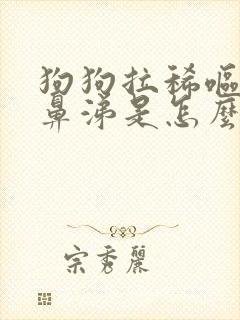 狗狗拉稀嘔
鼻涕是怎麼
宗秀麗